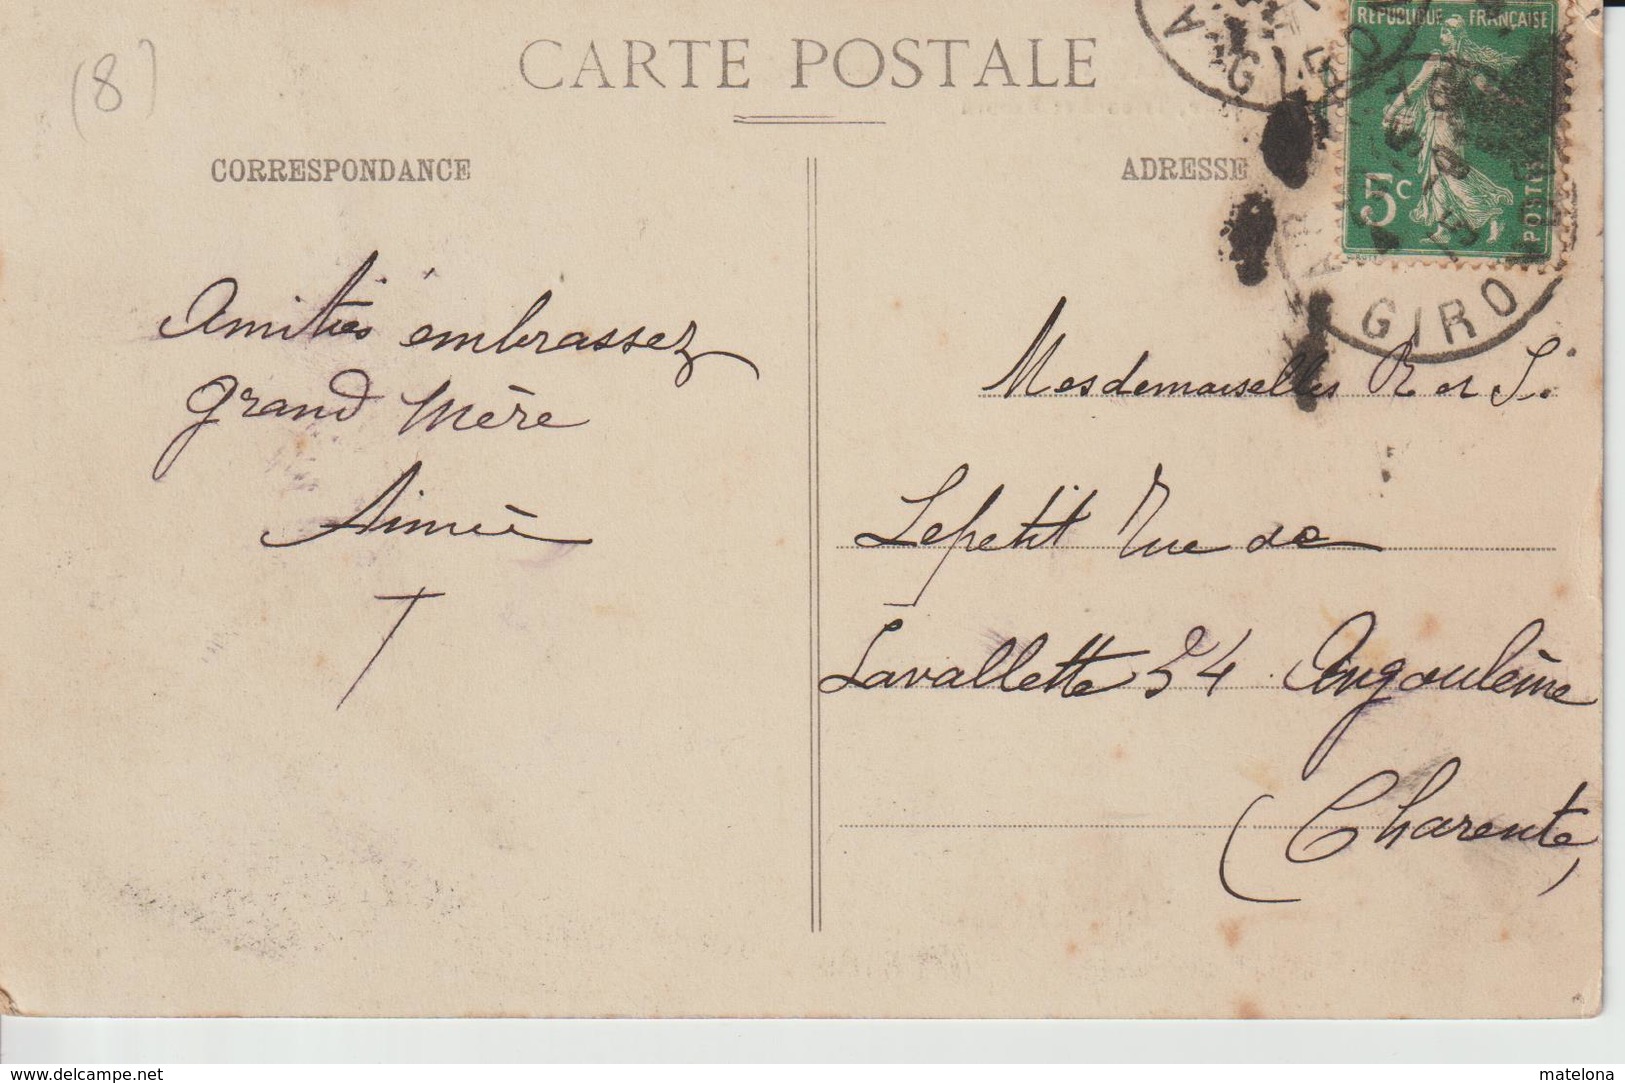 (8)
CARTE POSTALE
CORRESPONDANCE
ADRESSE
REPUBLIQUE FRANÇAISE
5c
POSTES
GIRO
Amitiés embrassez
Grand Mère
Aimée
Mesdemoiselles R et S.
Lepetit Rue de
Lavallette 54 Angoulême
(Charente)
www.delcampe.net
matelona